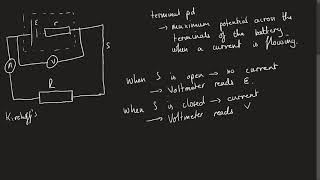 ε
r
S
A
V
R
Kirchoff's
terminal pd
→ maximum potential across the
terminals of the battery
when a current is flowing.
When S is open → no current
→ Voltmeter reads ε.
When S is closed → current
→ Voltmeter reads V